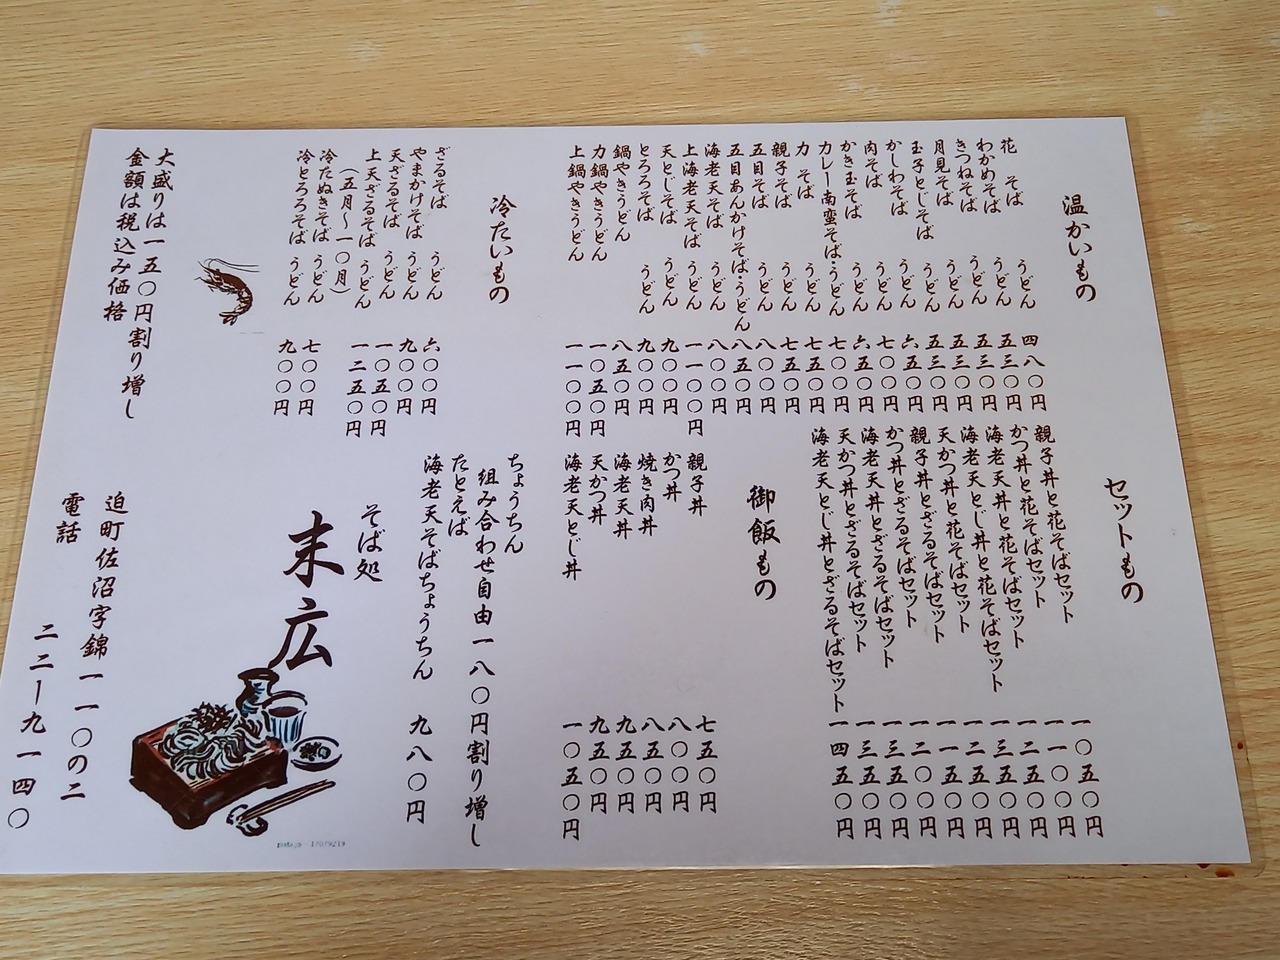 温かいもの
花そば うどん 四八〇円
わかめそば うどん 五三〇円
きつねそば うどん 五三〇円
月見そば うどん 五三〇円
玉子とじそば うどん 五三〇円
かしわそば うどん 六五〇円
肉そば うどん 七〇〇円
かき玉そば うどん 六五〇円
カレー南蛮そば・うどん 七〇〇円
力そば うどん 七五〇円
親子そば うどん 七五〇円
五目そば うどん 八〇〇円
五目あんかけそば・うどん 八五〇円
海老天そば うどん 八〇〇円
上海老天そば うどん 一一〇〇円
天とじそば うどん 九〇〇円
とろろそば うどん 九〇〇円
鍋やきうどん 八五〇円
力鍋やきうどん 一〇五〇円
上鍋やきうどん 一一〇〇円
冷たいもの
ざるそば うどん 六〇〇円
やまかけそば うどん 九〇〇円
天ざるそば うどん 一〇五〇円
上天ざるそば うどん 一二五〇円
(五月〜一〇月)
冷たぬきそば うどん 七〇〇円
冷とろろそば うどん 九〇〇円
大盛りは一五〇円割り増し
金額は税込み価格
セットもの
親子丼と花そばセット 一〇五〇円
かつ丼と花そばセット 一一〇〇円
海老天丼と花そばセット 一二五〇円
海老天とじ丼と花そばセット 一三五〇円
天かつ丼と花そばセット 一二五〇円
親子丼とざるそばセット 一一五〇円
かつ丼とざるそばセット 一二〇〇円
海老天丼とざるそばセット 一三五〇円
天かつ丼とざるそばセット 一三五〇円
海老天とじ丼とざるそばセット 一四五〇円
御飯もの
親子丼 七五〇円
かつ丼 八〇〇円
焼き肉丼 八五〇円
海老天丼 九五〇円
天かつ丼 九五〇円
海老天とじ丼 一〇五〇円
ちょうちん
組み合わせ自由一八〇円割り増し
たとえば
海老天そばちょうちん 九八〇円
そば処
末広
迫町佐沼字錦一一〇の二
電話
二二ー九一四〇